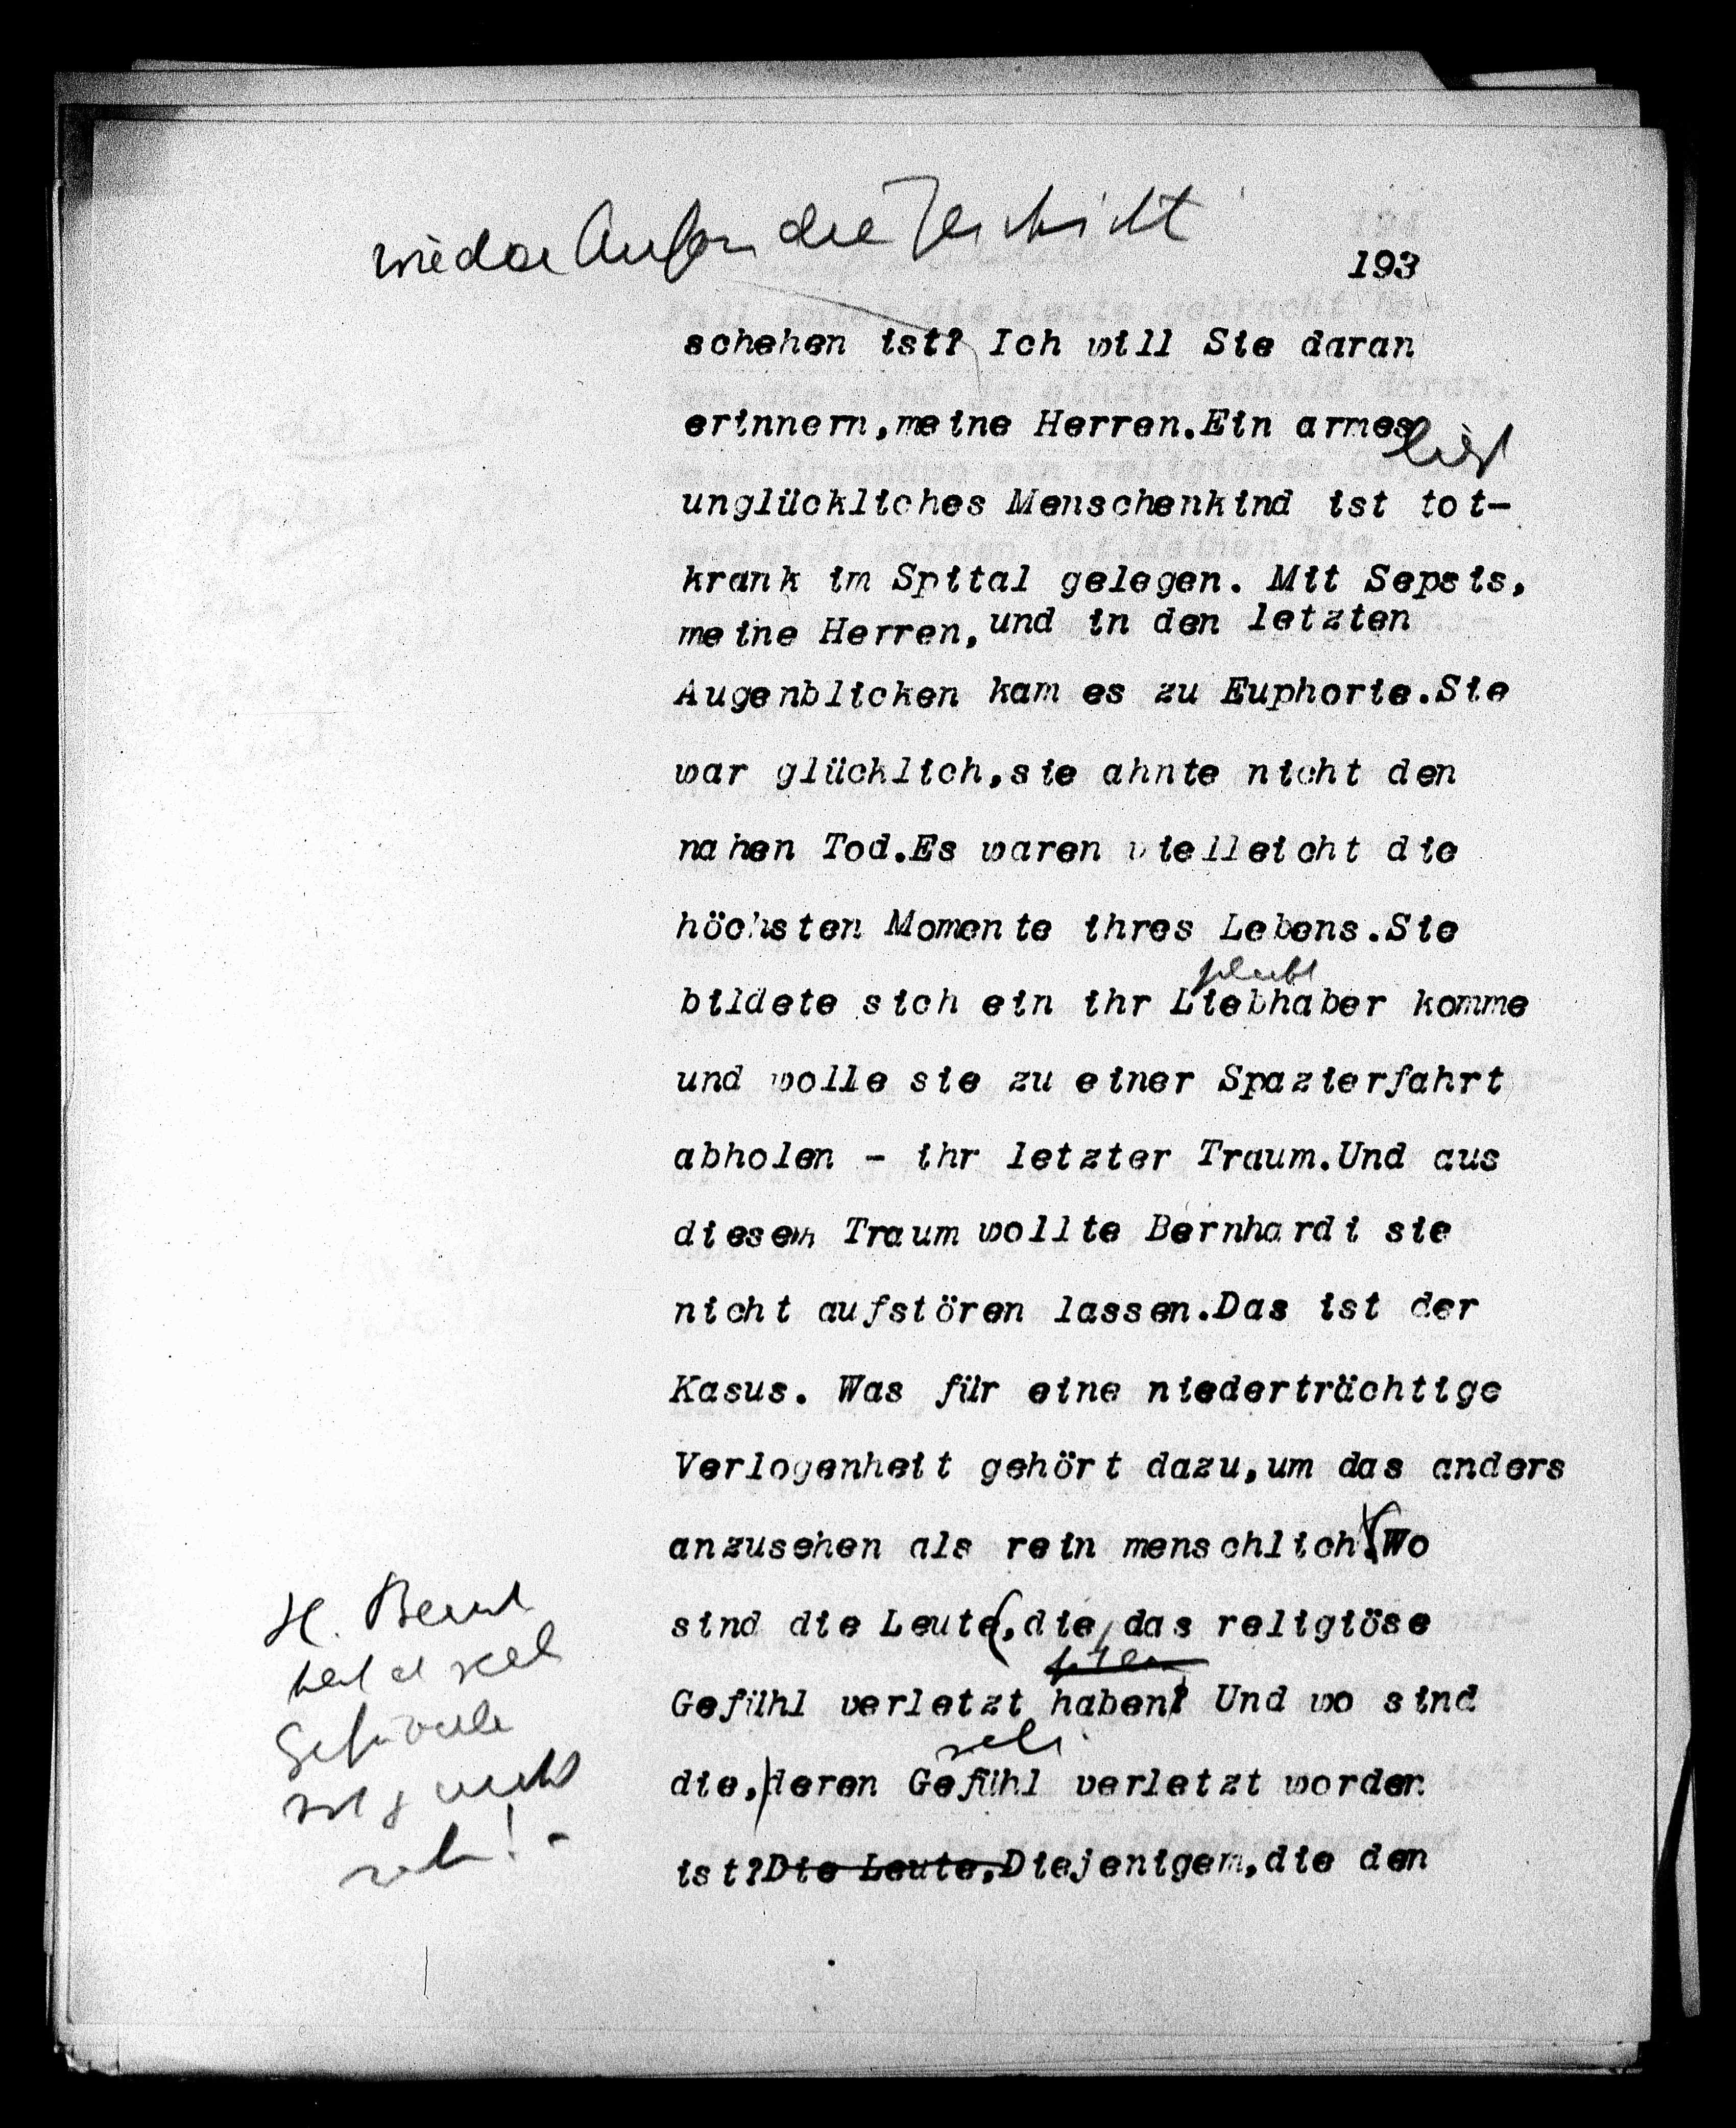 wieder
193
schehen ist? Ich will Sie daran
erinnern,meine Herren.Ein armes
liegt
unglückliches Menschenkind ist tot-
krank im Spital gelegen. Mit Sepsis,
meine Herren, und in den letzten
Augenblicken kam es zu Euphorie.Sie
war glücklich,sie ahnte nicht den
nahen Tod.Es waren vielleicht die
höchsten Momente ihres Lebens.Sie
glaubt
bildete sich ein ihr Liebhaber komme
und wolle sie zu einer Spazierfahrt
abholen - ihr letzter Traum.Und aus
diesem Traum wollte Bernhardi sie
nicht aufstören lassen.Das ist der
Kasus. Was für eine niederträchtige
Verlogenheit gehört dazu,um das anders
anzusehen als rein menschlich.Wo
sind die Leute,die das religiöse
Gefühl verletzt haben? Und wo sind
die,deren Gefühl verletzt worden
ist?Die Leute,Diejenigem,die den
H. Bernh